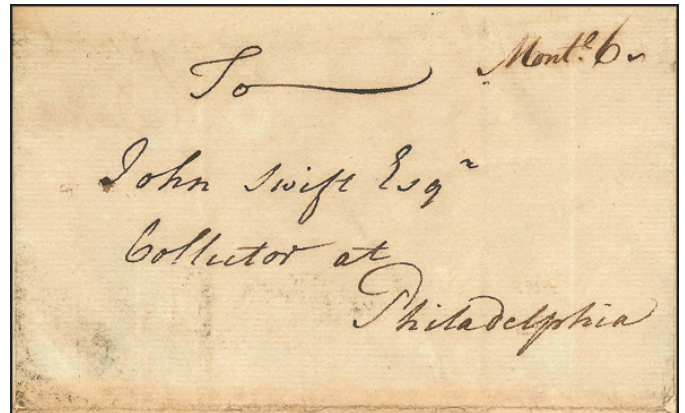 Mont.e 6
To
John Swift Esqr
Collector at
Philadelphia